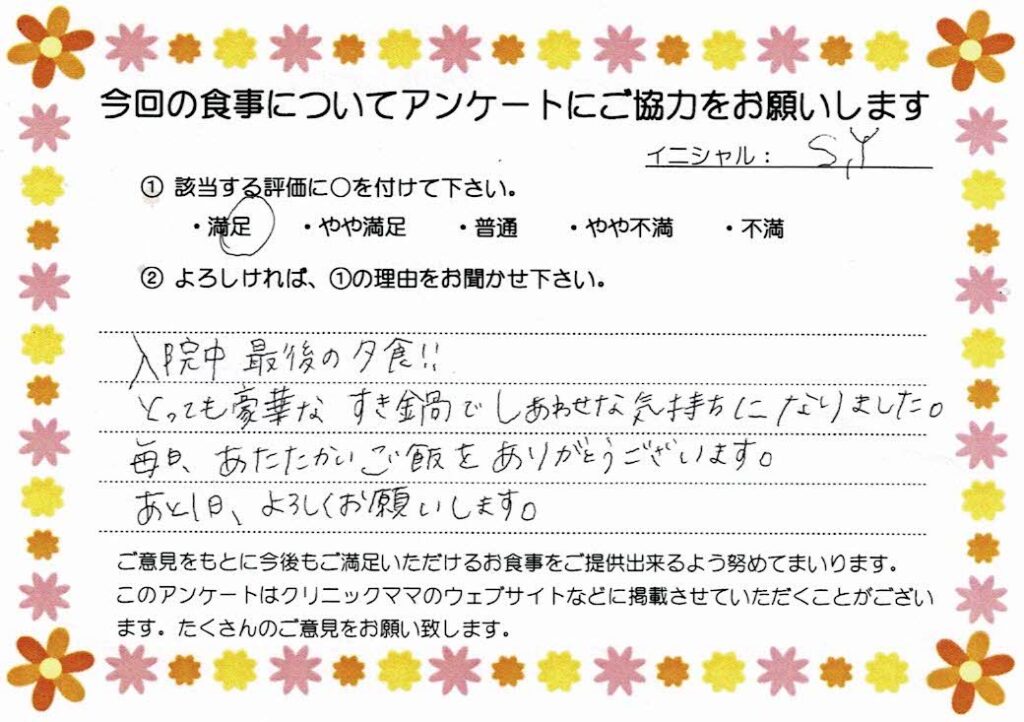 今回の食事についてアンケートにご協力をお願いします
イニシャル： S,Y
① 該当する評価に○を付けて下さい。
・満足 ・やや満足 ・普通 ・やや不満 ・不満
② よろしければ、①の理由をお聞かせ下さい。
入院中 最後の夕食!!
とっても豪華な すき鍋で しあわせな気持ちに なりました。
毎日、あたたかいご飯を ありがとうございます。
あと1日、よろしくお願いします。
ご意見をもとに今後もご満足いただけるお食事をご提供出来るよう努めてまいります。
このアンケートはクリニックママのウェブサイトなどに掲載させていただくことがござい
ます。たくさんのご意見をお願い致します。